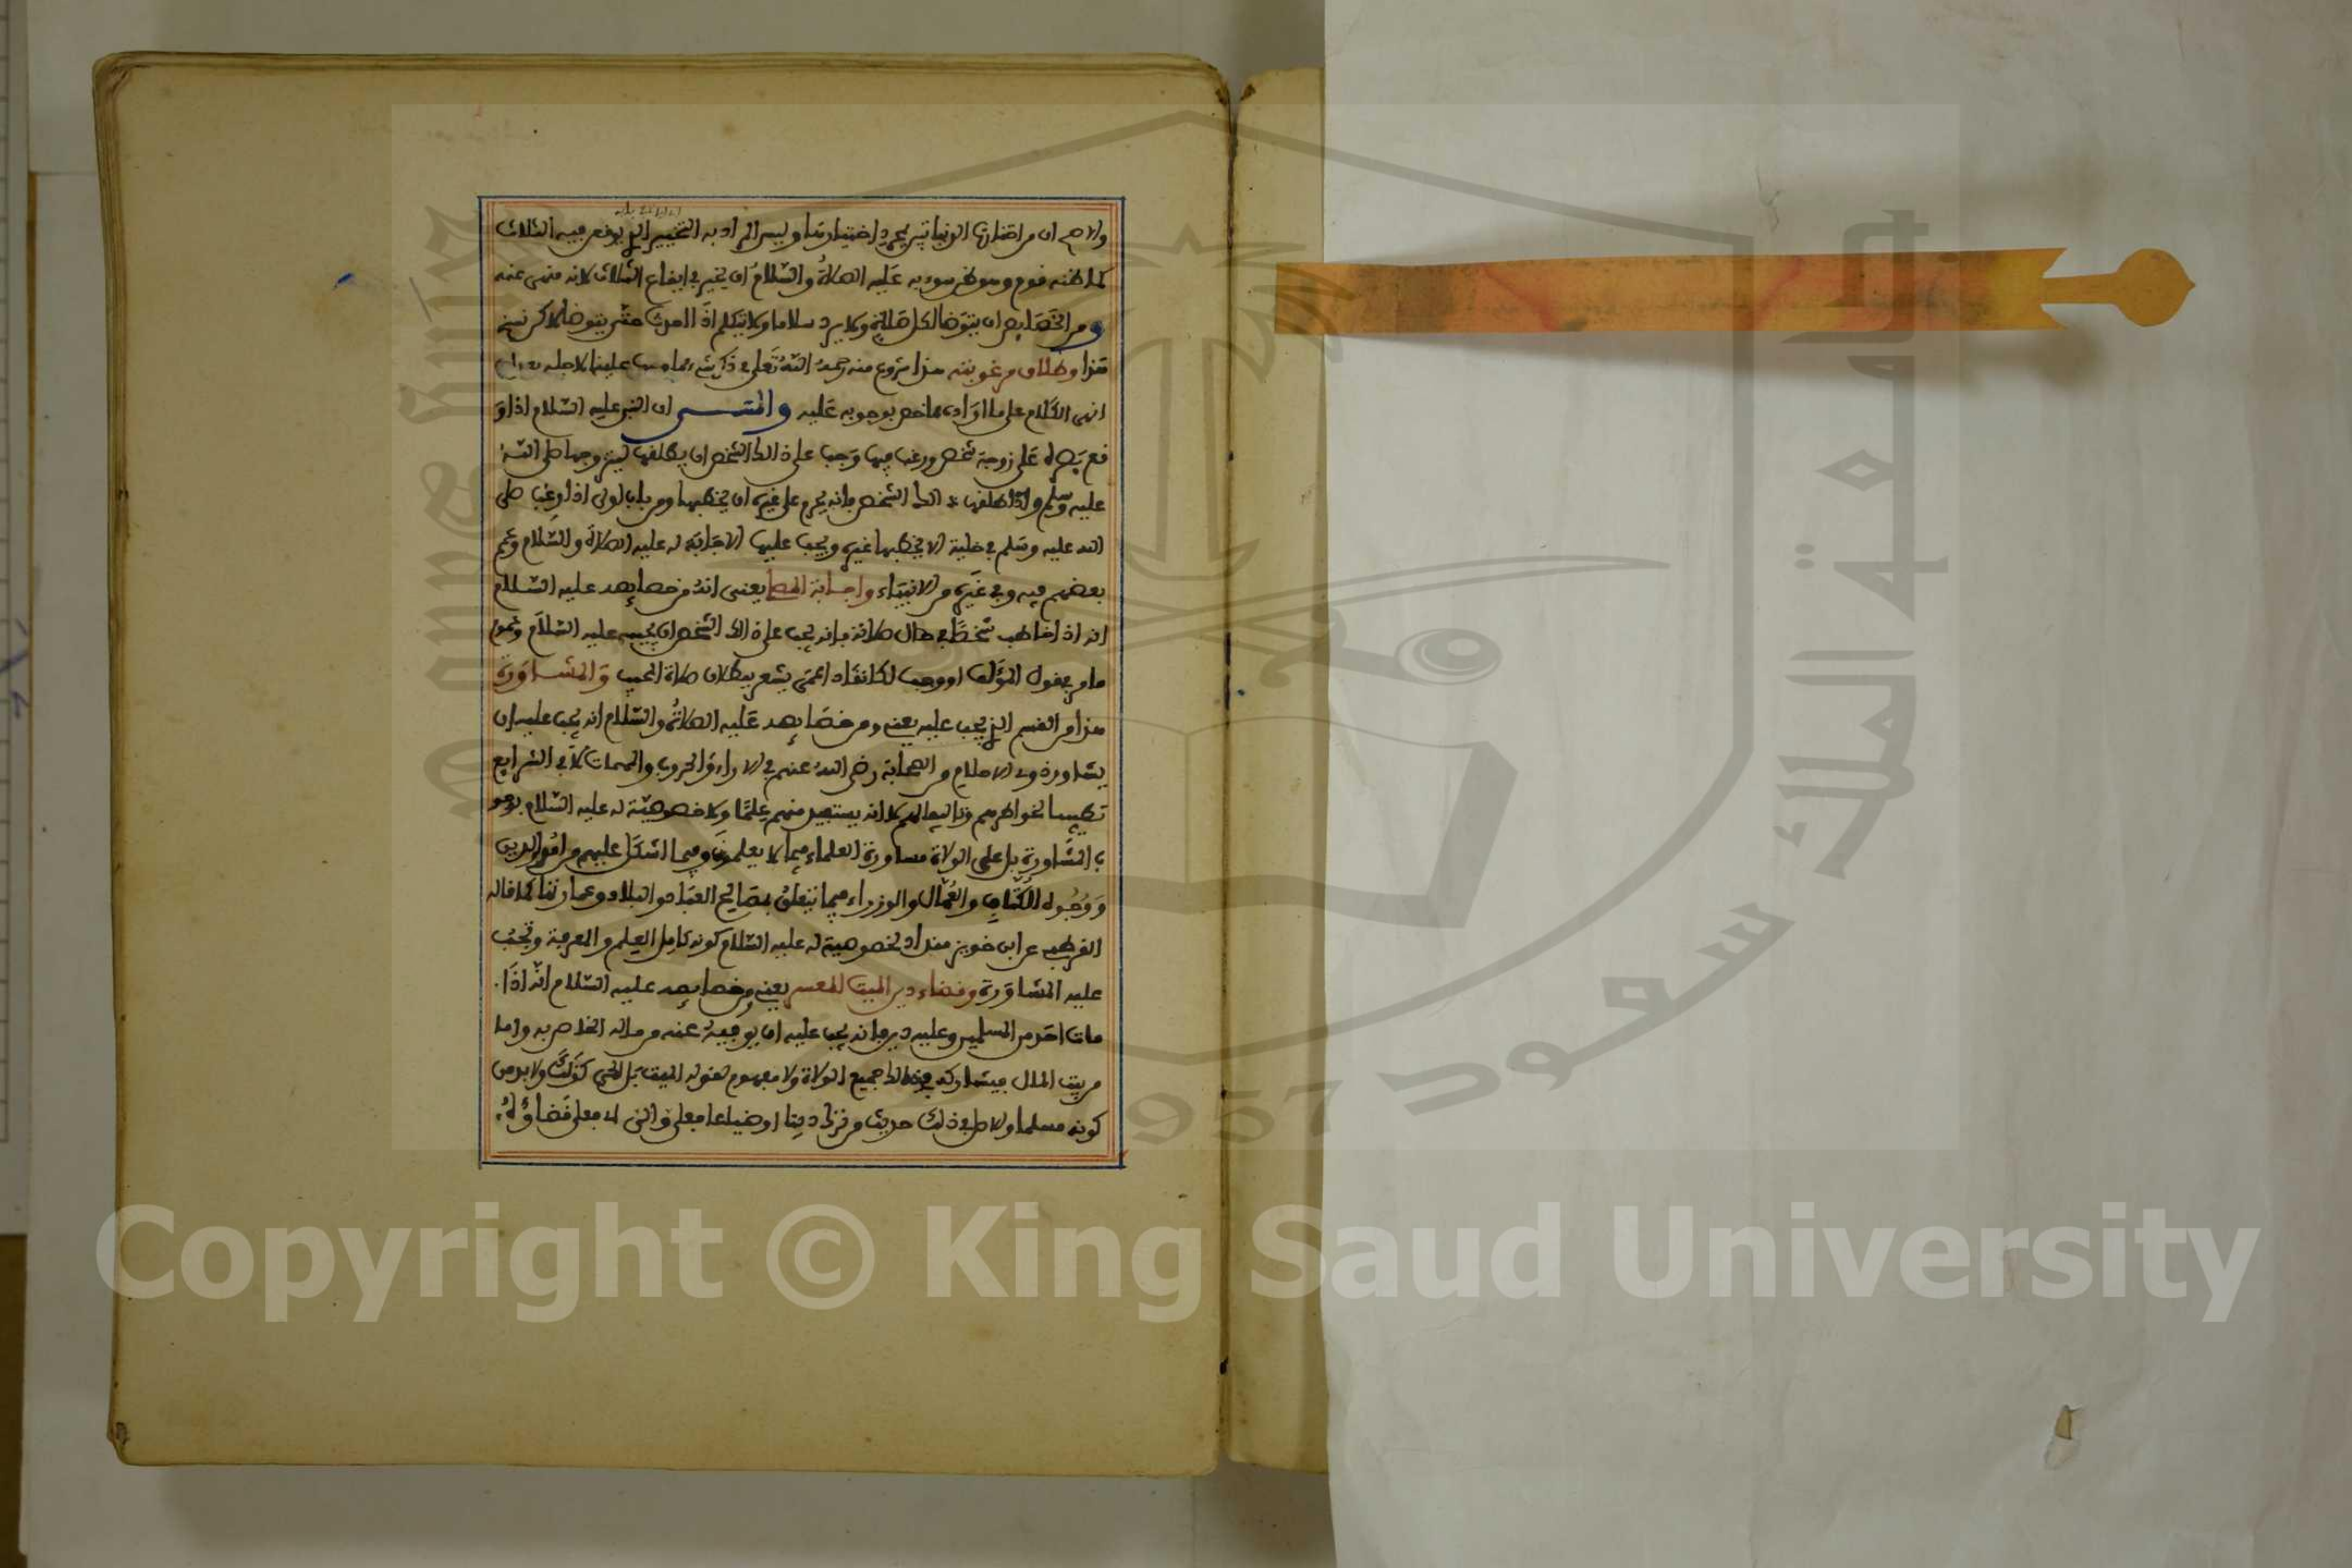 والاصح ان من اختارت الدنيا تبين بمجرد اختيارها وليس المراد به التخيير الذي يوقع فيه الثلاث
كما ظنه قوم وهو ظن سوء به عليه الصلاة والسلام ان يخير في ايقاع الثلاث لانه منهي عنه
ومن الخصايص ان يتوضا لكل صلاة ولا يرد سلاما ولا يتكلم اذا احدث حتى يتوضا لاكن نسخ
هذا وطلاق مرغوبته هذا شروع منه رحمه الله تعلى في ذكر شيء مما وجب علينا لاجله بعد ان
انهى الكلام على ما اراد مما خص بوجوبه عليه والمعنى ان النبي عليه السلام اذا و
قع بصره على زوجة شخص ورغب فيها وجب على ذالك الشخص ان يطلقها ليتزوجها صلى الله
عليه وسلم واذا طلقها ذالك الشخص فانه يحرم على غيره ان يخطبها ومن باب اولى اذا رغب صلى
الله عليه وسلم في خلية لا يخطبها غيره ويجب عليها الاجابة له عليه الصلاة والسلام وعمم
بعضهم فيه وفي غيره من الانبياء واجابة المصلي يعني انه من خصايصه عليه السلام
انه اذا خاطب شخصا في حال صلاته فانه يجب على ذالك الشخص ان يجيبه عليه السلام وعموم
ما مر يقول المؤلف او وجب لكانقاد اعمى يشعر ببطلان صلاة المجيب والمشاورة
هذا من القسم الذي يجب عليه يعني ومن خصايصه عليه الصلاة والسلام انه يجب عليه ان
يشاور ذوي الاحلام من الصحابة رضي الله عنهم في الاراء والحروب والمهمات لا في الشرايع
تطييبا لخواطرهم وتاليفا لهم لا انه يستفيد منهم علما ولا خصوصية له عليه السلام بوجو
ب المشاورة بل على الولاة مشاورة العلماء فيما لا يعلمون وفيما اشكل عليهم من امور الدين
ووجوه الكتاب والعمال والوزراء فيما يتعلق بمصالح العباد والبلاد وعمارتها كما قاله
القرطبي عن ابن خويز منداد لخصوصية له عليه السلام كونه كامل العلم والمعرفة وتجب
عليه المشاورة وقضاء دين الميت المعسر يعني من خصايصه عليه السلام انه اذا
مات احد من المسلمين وعليه دين فانه يجب عليه ان يوفيه عنه من ماله الخاص به واما
من بيت المال فيشاركه في ذالك جميع الولاة ولا مفهوم لقوله الميت بل الحي كذلك ولابد من
كونه مسلما والاصل في ذلك حديث من ترك دينا او ضياعا فعلي والي اي فعلي قضاؤه
Copyright © King Saud University
1957